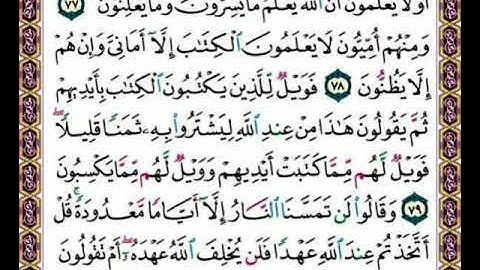 أَوَلَا يَعْلَمُونَ أَنَّ ٱللَّهَ يَعْلَمُ مَا يُسِرُّونَ وَمَا يُعْلِنُونَ ٧٧
وَمِنْهُمْ أُمِّيُّونَ لَا يَعْلَمُونَ ٱلْكِتَٰبَ إِلَّآ أَمَانِىَّ وَإِنْ هُمْ
إِلَّا يَظُنُّونَ ٧٨ فَوَيْلٌ لِّلَّذِينَ يَكْتُبُونَ ٱلْكِتَٰبَ بِأَيْدِيهِمْ
ثُمَّ يَقُولُونَ هَٰذَا مِنْ عِندِ ٱللَّهِ لِيَشْتَرُوا۟ بِهِۦ ثَمَنًا قَلِيلًا ۖ
فَوَيْلٌ لَّهُم مِّمَّا كَتَبَتْ أَيْدِيهِمْ وَوَيْلٌ لَّهُم مِّمَّا يَكْسِبُونَ
٧٩ وَقَالُوا۟ لَن تَمَسَّنَا ٱلنَّارُ إِلَّآ أَيَّامًا مَّعْدُودَةً ۚ قُلْ
أَتَّخَذْتُمْ عِندَ ٱللَّهِ عَهْدًا فَلَن يُخْلِفَ ٱللَّهُ عَهْدَهُۥٓ ۖ أَمْ تَقُولُونَ